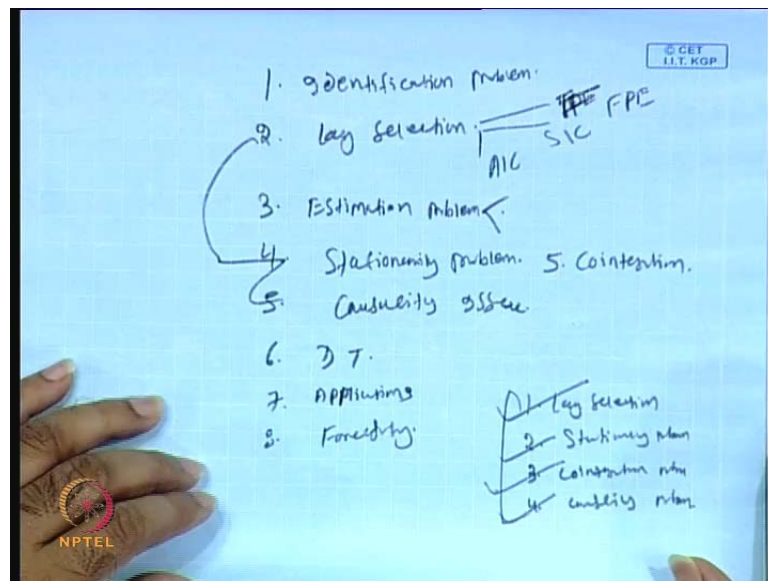 © CET
I.I.T. KGP
1. Identification problem.
2. Lag Selection. FPE
SIC
AIC
3. Estimation problem
4. Stationarity problem. 5. Cointegration.
5. Causality issue
6. D T.
7. Applications
8. Forecasting.
1. Lag Selection
2. Stationary
3. Cointegration
4. Causality
NPTEL